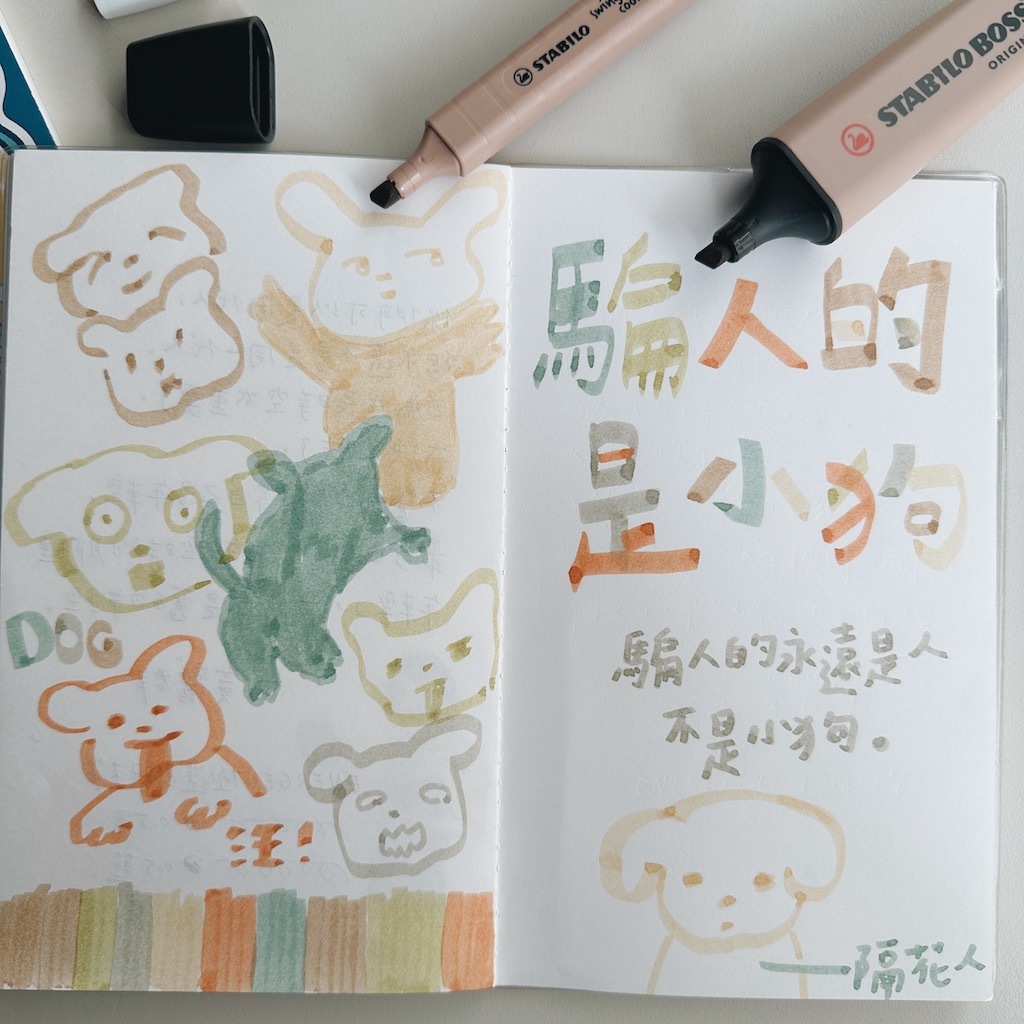 STABILO swing
STABILO BOSS
ORIGINAL
DOG
汪!
騙人的
是小狗
騙人的永遠是人
不是小狗。
——隔花人